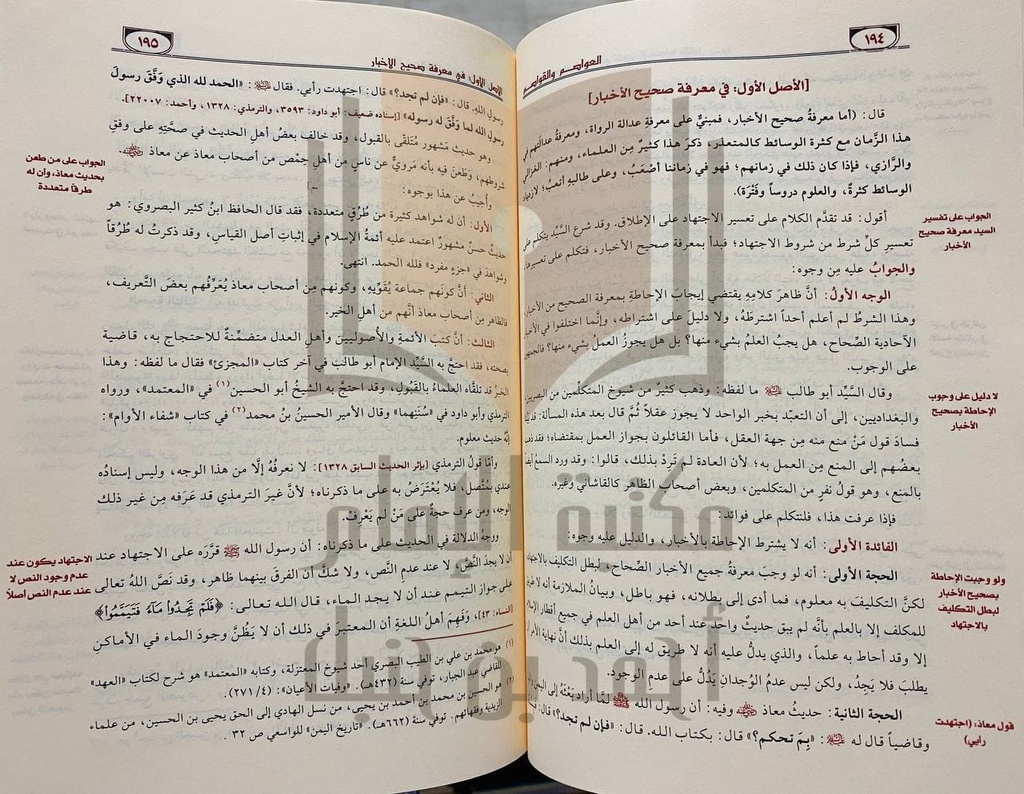 ١٩٤
العواصم والقواصم
[الأصل الأول: في معرفة صحيح الأخبار]
قال: (أما معرفةُ صحيح الأخبار، فمبنيٌّ على معرفةِ عدالة الرواة، ومعرفةُ عدالتهم في
هذا الزَّمان مع كثرة الوسائط كالمتعذر، ذكرَ هذا كثيرٌ مِن العلماء، ومنهم: الغزالي
والرَّازي، فإذا كان ذلك في زمانهم؛ فهو في زماننا أصْعَبُ، وعلى طالبهِ أتعبُ؛ لازدياد
الوسائط كثرةً، والعلوم دروساً وقَتْرَة).
أقول: قد تقدَّم الكلام على تعسير الاجتهاد على الإطلاق. وقد شرع السيِّد يتكلم على
تعسيرِ كلِّ شرط من شروط الاجتهاد؛ فبدأ بمعرفة صحيح الأخبار، فتكلم على تعسيرها،
والجوابُ عليه مِن وجوه:
الوجه الأولُ: أنَّ ظاهرَ كلامِهِ يقتضي إيجابَ الإحاطةِ بمعرفة الصحيح من الأخبار،
وهذا الشرطُ لم أعلم أحداً اشترطَهُ، ولا دليلَ على اشتراطه، وإنَّما اختلفوا في الأخبار
الآحادية الصِّحاح، هل يجبُ العلمُ بشيء منها؟ بل هل يجوزُ العملُ بشيء منها؟ فالجمهور
على الوجوب.
وقال السَّيِّد أبو طالب ﵁ ما لفظه: وذهب كثيرٌ من شيوخ المتكلِّمين من البصريين
والبغداديين، إلى أن التعبّد بخبر الواحد لا يجوز عقلاً ثُمَّ قال بعد هذه المسألة: قد
فسادَ قول مَنْ منع منه مِن جهة العقل، فأما القائلون بجواز العمل بمقتضاه؛ فقد ذهب
بعضُهم إلى المنع مِن العمل به؛ لأن العادة لم تَرِدْ بذلك، قالوا: وقد ورد السمعُ أيضاً
بالمنع، وهو قولُ نفرٍ من المتكلمين، وبعض أصحاب الظاهر كالقاشاني وغيره.
فإذا عرفت هذا، فلنتكلم على فوائد:
الفائدة الأولى: أنه لا يشترط الإحاطة بالأخبار، والدليل عليه وجوه:
الحجة الأولى: أنه لو وجبَ معرفةُ جميع الأخبار الصِّحاح، لبطل التكليف بالاجتهاد،
لكنَّ التكليفَ به معلوم، فما أدى إلى بطلانه، فهو باطل، وبيانُ الملازمة أنه لا
للمكلف إلا بالعلم بأنَّه لم يبق حديثٌ واحد عند أحد من أهل العلم في جميع أقطار الإسلام
إلا وقد أحاط به علماً، والذي يدلُّ عليه أنه لا طريق له إلى العلم بذلك أنَّ نهاية الأمر أن
يطلبَ فلا يَجِدُ، ولكن ليس عدمُ الوُجدانِ يَدُلُّ على عدم الوجود.
الحجة الثانية: حديثُ معاذ ﵁ وفيه: أن رسول الله ﷺ لمَّا أراد بَعْثَهُ إلى اليمن
وقاضياً قال له ﷺ: «بِمَ تحكم؟» قال: بكتاب الله. قال: «فإن لم تجد؟» قال:
الجواب على تفسير
السيد معرفة صحيح
الأخبار
لا دليل على وجوب
الإحاطة بصحيح
الأخبار
ولو وجبت الإحاطة
بصحيح الأخبار
لبطل التكليف
بالاجتهاد
قول معاذ: (اجتهدت
رأيي)
١٩٥
الأصل الأول: في معرفة صحيح الأخبار
رسولِ الله. قال: «فإن لم تجد؟» قال: اجتهدت رأيي. فقال ﷺ: «الحمد لله الذي وَفَّقَ رسولَ
رسولِ الله لما وَفَّق له رسوله» [إسناده ضعيف: أبو داود: ٣٥٩٣، والترمذي: ١٣٢٨، وأحمد: ٢٢٠٠٧].
وهو حديث مشهور مُتَلَقَّى بالقبول، وقد خالف بعضُ أهل الحديث في صحَّتِه على وفقِ
شروطهم، وَطَعَنَ فيه بأنه مَرويٌّ عن ناسٍ من أهل حِمْص من أصحاب معاذ عن معاذ ﵁.
وأُجيبُ عن هذا بوجوه:
الأول: أن له شواهد كثيرة من طُرُقٍ متعددة، فقد قال الحافظ ابنُ كثير البصروي: هو
حديثٌ حسنٌ مشهورٌ اعتمد عليه أئمةُ الإسلام في إثباتِ أصل القياس، وقد ذكرتُ له طُرُقاً
وشواهدَ في «جزءٍ مفرد» فلله الحمد. انتهى.
الثاني: أنَّ كونَهم جماعة يُقَوِّيهِ، وكونهم مِن أصحابِ معاذ يُعَرِّفُهم بعضَ التَّعريف،
فالظاهر مِن أصحاب معاذ أنَّهم من أهل الخير.
الثالث: أنَّ كتبَ الأئمةِ والأُصوليين وأهل العدل متضمِّنةٌ للاحتجاج به، قاضية
بصحته، فقد احتجَّ به السَّيِّد الإمام أبو طالب في آخر كتاب «المجزئ» فقال ما لفظه: وهذا
الخبرُ قد تلقَّاه العلماءُ بالقَبُولِ، وقد احتجَّ به الشَّيخُ أبو الحسين(١) في «المعتمد»، ورواه
الترمذي وأبو داود في «سُنَنِهما» وقال الأمير الحسينُ بنُ محمد(٢) في كتاب «شفاء الأوام»:
إنَّه حديث معلوم.
وأمَّا قولُ الترمذي [بإثر الحديث السابق ١٣٢٨]: لا نعرفُهُ إلَّا من هذا الوجه، وليس إسنادُه
عندي بمُتَّصل، فلا يُعْتَرَضُ به على ما ذكرناه؛ لأنَّ غيرَ الترمذي قد عَرَفه مِن غير ذلك
الوجه، ومن عرف حجةٌ على مَنْ لم يَعْرِفْ.
ووجهُ الدلالة في الحديث على ما ذكرناه: أن رسول الله ﷺ قرَّرَه على الاجتهاد عند
أن لا يجدَ النَّصَّ، لا عند عدم النَّص، ولا شكَّ أن الفرقَ بينهما ظاهر، وقد نَصَّ اللهُ تعالى
على جوازِ التيمم عند أن لا يجد الماء، قال الله تعالى: ﴿فَلَمْ تَجِدُوا مَاءً فَتَيَمَّمُوا﴾
[النساء: ٤٣]، وَفَهِمَ أهلُ اللغةِ أن المعتبرَ في ذلك أن لا يَظُنَّ وجودَ الماء في الأماكن
(١) هو محمد بن علي بن الطيب البصري أحد شيوخ المعتزلة، وكتابه «المعتمد» هو شرح لكتاب «العهد»
للقاضي عبد الجبار، توفي سنة (٤٣٢هـ). «وفيات الأعيان»: (٤/ ٢٧١)
(٢) هو الحسين بن محمد بن أحمد بن يحيى، من نسل الهادي إلى الحق يحيى بن الحسين، من علماء
الزيدية وفقهائهم. توفي سنة (٦٦٢هـ). «تاريخ اليمن» للواسعي ص ٣٢ .
الجواب على من طعن
بحديث معاذ، وان له
طرقا متعددة
الاجتهاد يكون عند
عدم وجود النص لا
عند عدم النص أصلاً
مكتبة الإمام
أحمد بن حنبل